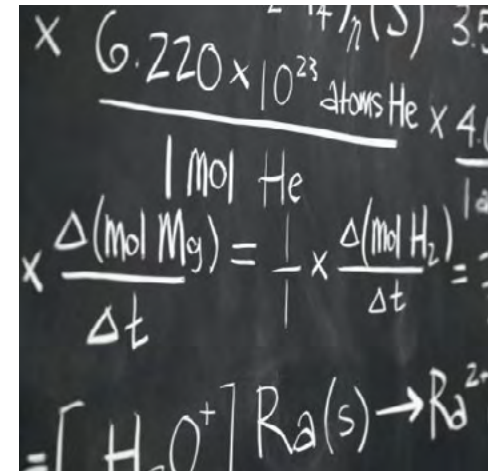 × 6.220 × 10²³ atoms He × 4.
1 mol He
× Δ(mol Mg) / Δt = 1/1 × Δ(mol H₂) / Δt =
= [H₃O⁺] Ra(s) → Ra²⁺